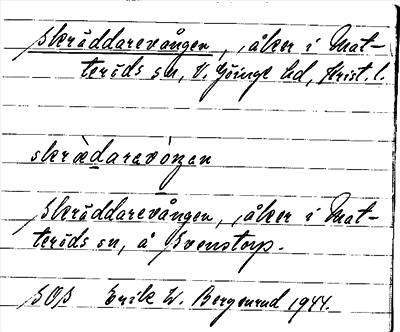 Skräddarevången, åker i Mat-
teröds sn, V. Göinge hd, Krist. l.
skrædarevóngen
Skräddarevången, åker i Mat-
teröds sn, å Svenstorp.
SOS Erik W. Bergenrud 1944.